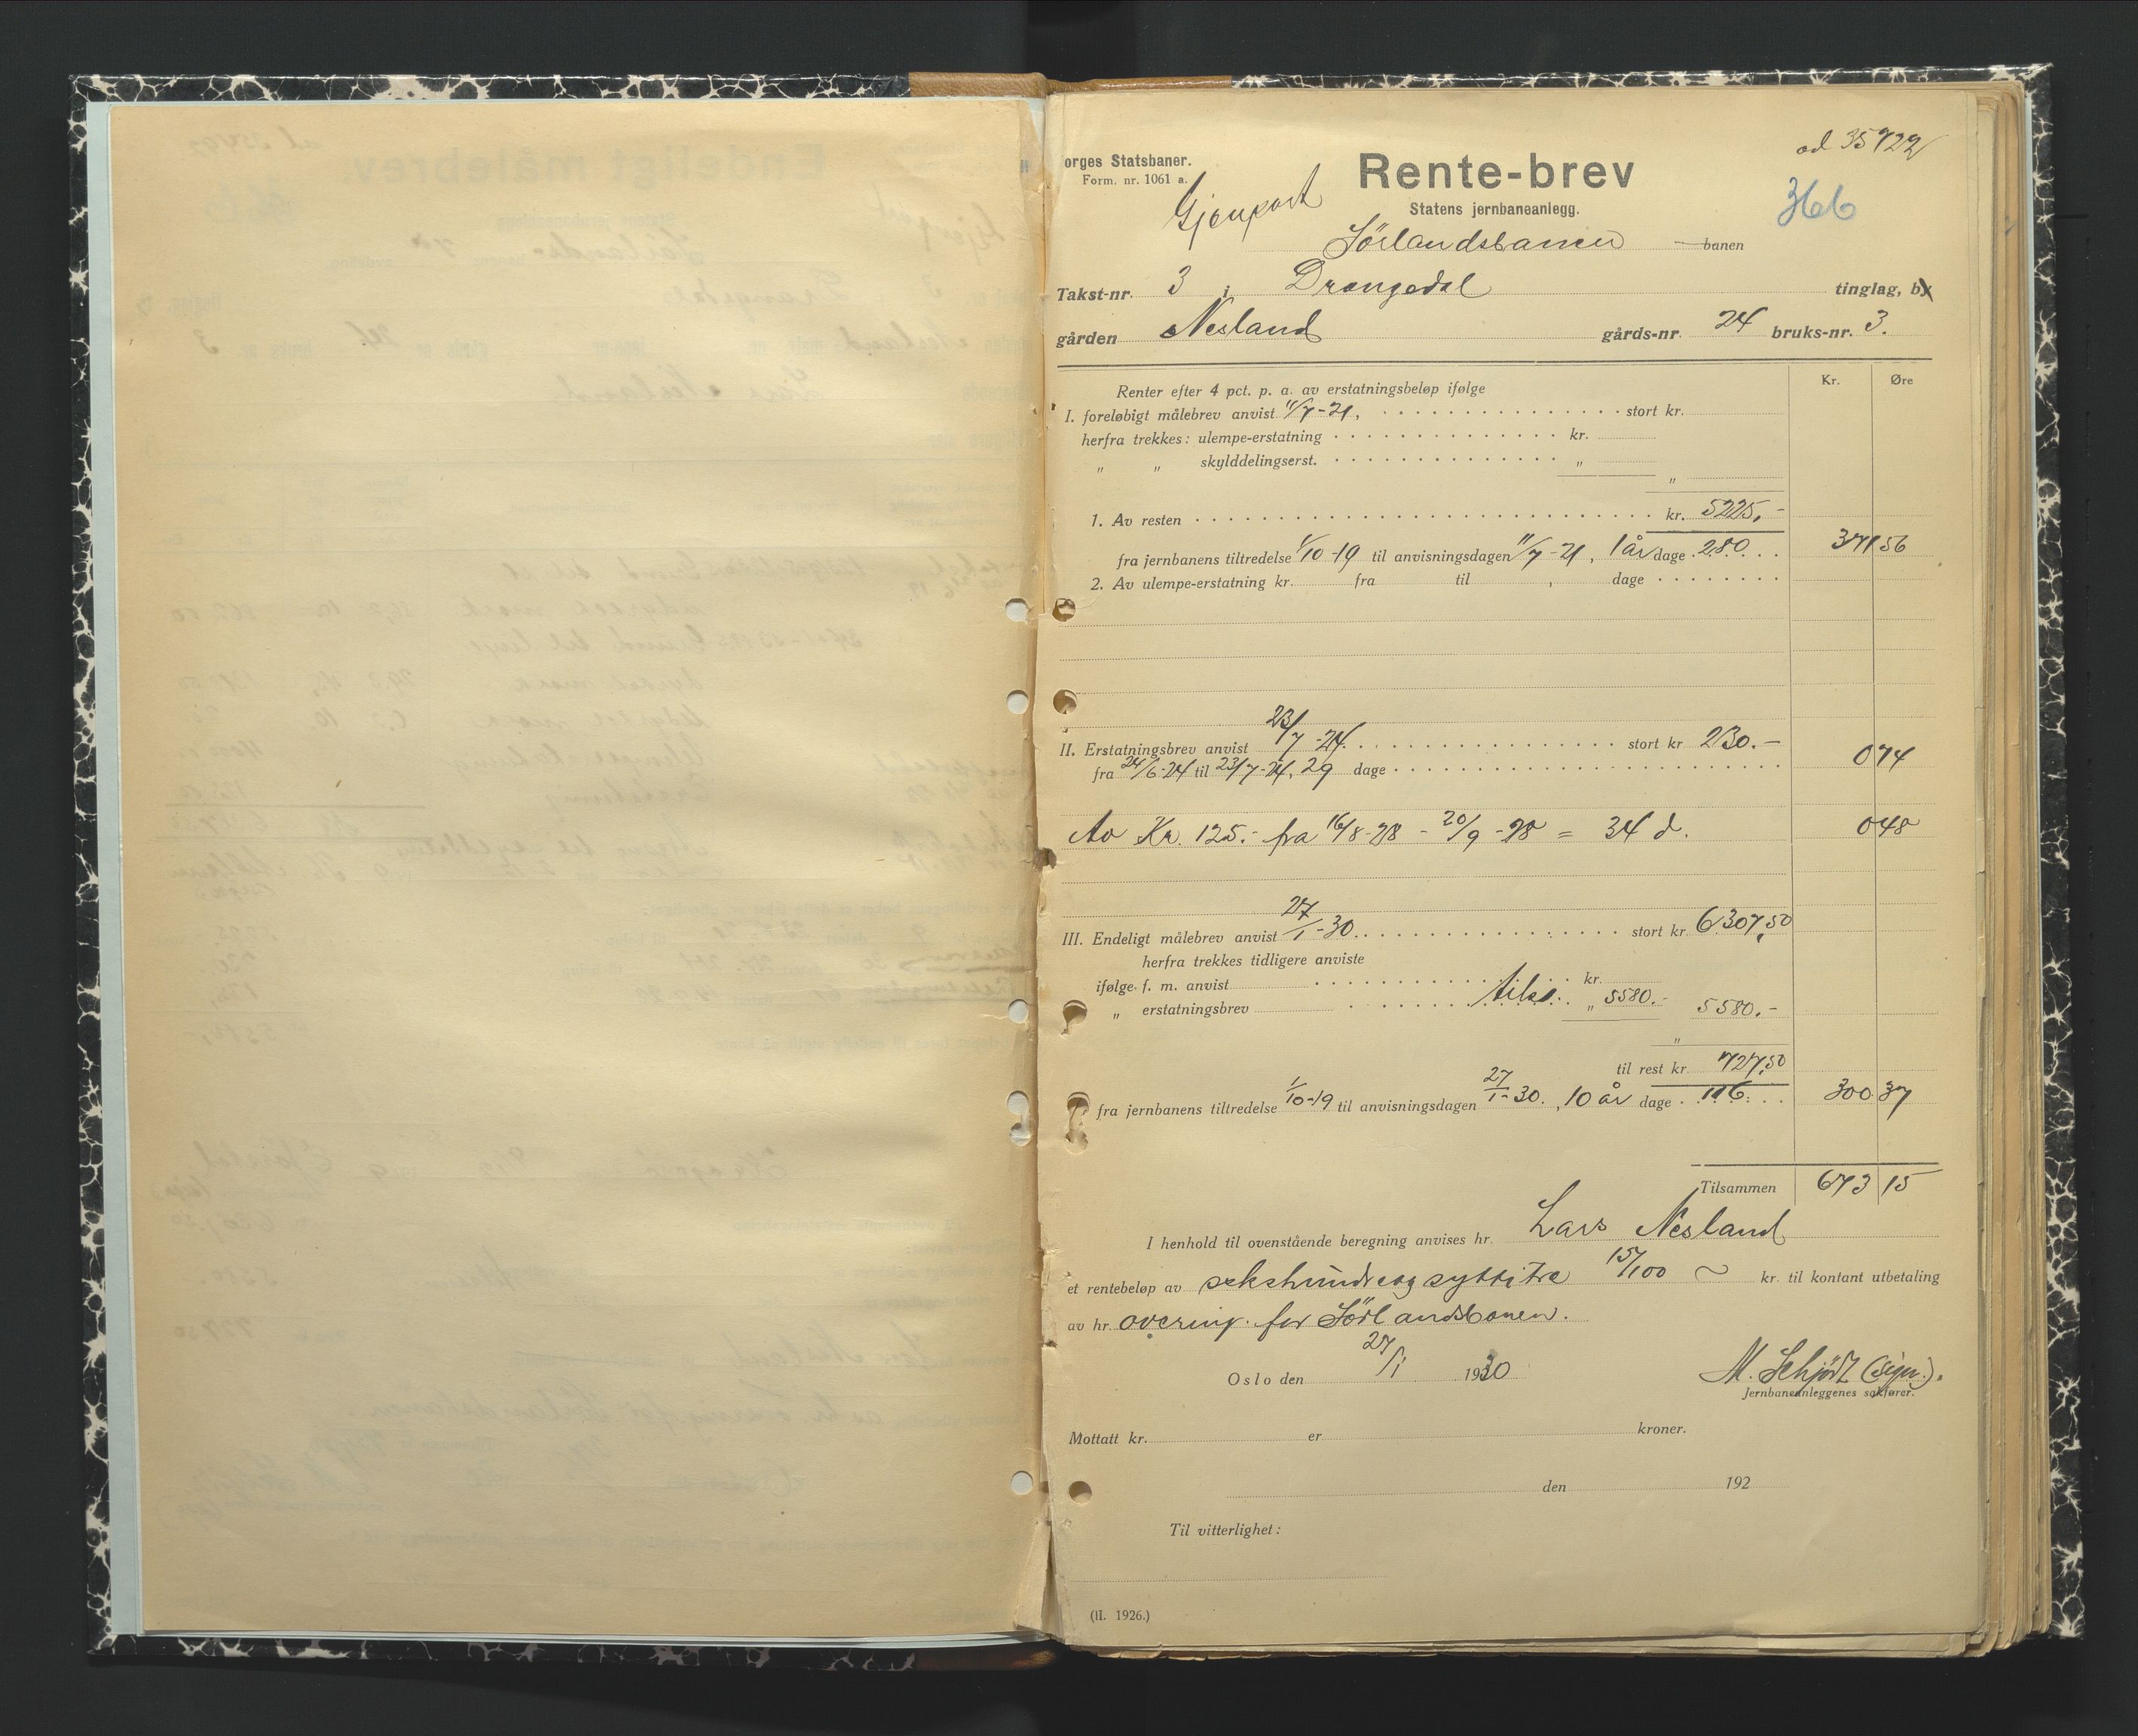 orges Statsbaner.
Form. nr. 1061 a.
Gjenpart
Rente-brev
Statens jernbaneanlegg.
36b
Sörlandsbanen banen
Takst-nr. 3 i Drangedal tinglag, by
gården Nesland gårds-nr. 24 bruks-nr. 3.
Kr. Øre
Renter efter 4 pct. p. a. av erstatningsbeløp ifølge
I. foreløbigt målebrev anvist 11/7-21, stort kr.
herfra trekkes: ulempe-erstatning kr.
„ „ skylddelingserst. „
„
1. Av resten kr. 5225,-
fra jernbanens tiltredelse 1/10-19 til anvisningsdagen 11/7-21, 1 år dage 280 371 56
2. Av ulempe-erstatning kr. fra til , dage
II. Erstatningsbrev anvist 23/7-24. stort kr 230.-
fra 24/6-24 til 23/7-24, 29 dage 0 74
Av Kr. 125.- fra 16/8-28 - 20/9-28 = 34 d. 0 48
III. Endeligt målebrev anvist 27/1-30. stort kr 6307,50
herfra trekkes tidligere anviste
ifølge f. m. anvist kr.
„ erstatningsbrev tils. „ 5580.- 5580.-
„
til rest kr. 727,50
fra jernbanens tiltredelse 1/10-19 til anvisningsdagen 27/1-30. , 10 år dage 116 300 37
Tilsammen 673 15
I henhold til ovenstående beregning anvises hr. Lars Nesland
et rentebeløp av sekshundreogsyttitre 15/100 ~ kr. til kontant utbetaling
av hr. overing. for Sörlandsbanen.
Oslo den 27/1 1930
M. Schjödt (sign.).
Jernbaneanleggenes sakfører.
Mottatt kr. er kroner.
den 192
Til vitterlighet:
(II. 1926.)